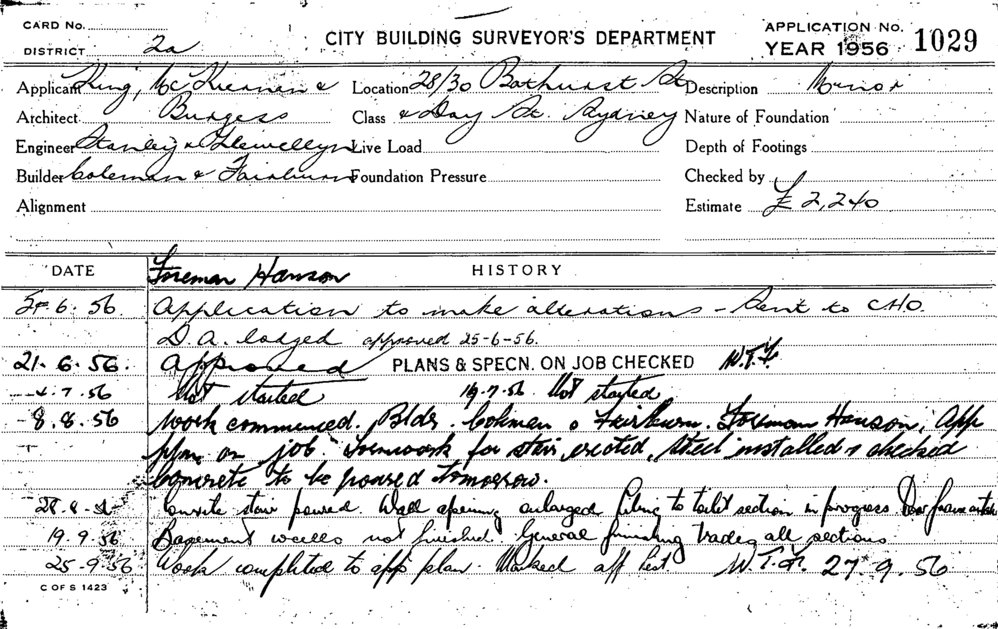 CARD No.
DISTRICT 2a
CITY BUILDING SURVEYOR'S DEPARTMENT
APPLICATION No.
YEAR 1956 1029
Applicant King, McKiernan &
Architect Burgess
Engineer Stanley & Llewellyn
Builder Coleman & Fairburn
Alignment
Location 28/30 Bathurst St
Class & Day St. Sydney
Live Load
Foundation Pressure
Description Minor
Nature of Foundation
Depth of Footings
Checked by
Estimate £ 2,240
DATE Foreman Hanson HISTORY
6.56. Application to make alterations - Sent to C.H.O.
D.A. lodged approved 25-6-56.
21.6.56. Approved PLANS & SPECN. ON JOB CHECKED W.T.
7.56 Not started 19.7.56 Not started
8.8.56 Work commenced. Bldr. Coleman & Fairburn. Foreman Hanson, App
plan on job. Formwork for stair erected, steel installed & checked
Concrete to be poured tomorrow.
28.8.56 Concrete stair poured. Wall opening enlarged. Tiling to toilet section in progress. Door frame
19.9.56 Basement walls not finished. General finishing trades all sections.
25.9.56 Work completed to app plan. Marked off list W.T. 27.9.56
C OF S 1423